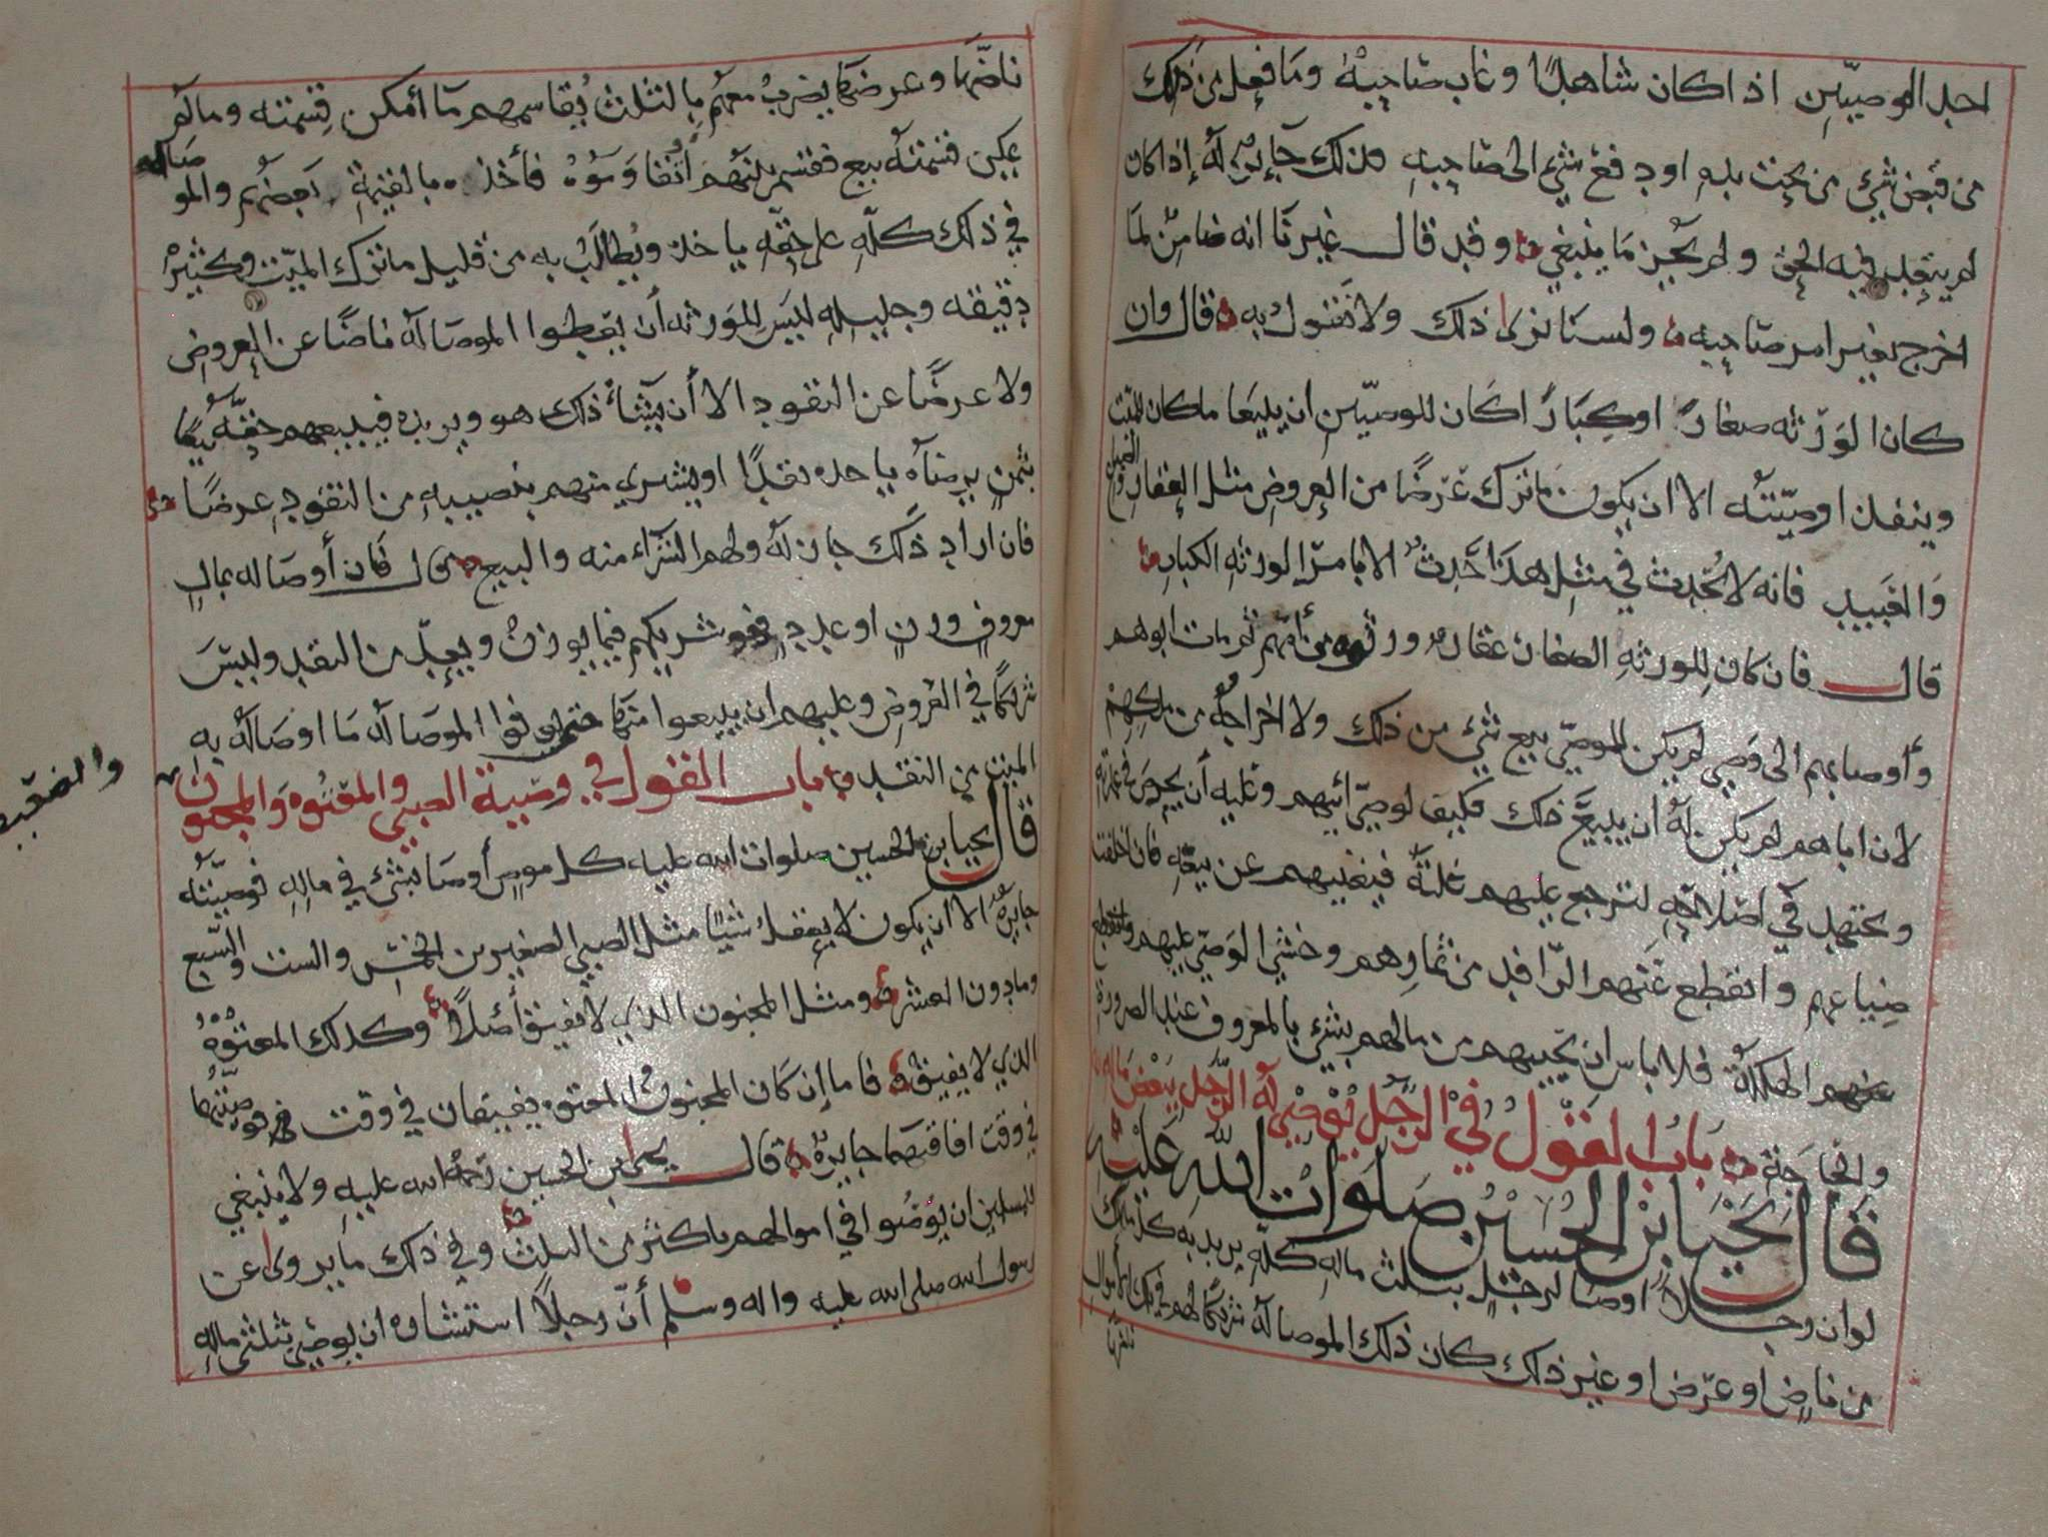 احد الوصيّين اذا كان شاهدًا وغاب صاحبه وما فعل من ذلك
من قبض شيء من تحت يده او دفع شيء الى صاحبه فذلك جايز له إذا كان
لم يتعد فيه الحق ولم يجز ما ينبغي وقد قال غيرنا انه ضامن لما
اخرج بغير امر صاحبه ولسنا نرى ذلك ولا نقول به قال وان
كان الورثه صغارًا او كبارًا كان للوصيّين ان يبيعا ما كان للميت
وينفذا وصيّته الا ان يكون ما ترك عرضًا من العروض مثل العقار والنخل
والعبيد فانه لا يحدث في مثل هذا حدث الا بامر الورثه الكبار
قال فان كان للورثه الصغار عقار ورثوه من أمهم ثم مات ابوهم
وأوصا بهم الى وصي لم يكن للوصي بيع شيء من ذلك ولا اخراجه من ملكهم
لان اباهم لم يكن له ان يبيع ذلك فكيف لوصي ابيهم وعليه أن يحرص في عمارته
ويجتهد في اصلاحه لترجع عليهم غلته فيغنيهم عن بيعه فان اخلفت
ضياعهم وانقطع عنهم الرافد من ثمارهم وخشي الوصي عليهم وانقطع
عنهم الهلكة فلا باس ان يحييهم من مالهم بشيء بالمعروف عند الضرورة
والحاجة باب القول في الرجل يوصي له الرجل ببعض ماله
قال يحيا بن الحسين صلوات الله عليه
لو ان رجلاً اوصا لرجل بثلث ماله كله يريد به كل ملك
من ناض او عرض او غير ذلك كان ذلك الموصا له شريكًا لهم في تلك الأموال
ناضها وعرضها يضرب معهم بالثلث يقاسمهم ما أمكن قسمته وما لم
يمكن قسمته بيع فقسم بينهم أثمانه فأخذه بالقيمة بعضهم والموصا له
في ذلك كله على حقه ياخذ ويطالب به من قليل ما ترك الميت وكثيره
دقيقه وجليله ليس للورثه أن يعطوا الموصا له ناضًا عن العروض
ولا عرضًا عن النقود الا أن يشاء ذلك هو ويريده فيبيعهم حقه بيعًا
بثمن يرضاه ياخذه نقدًا او يشتري منهم بنصيبه من النقود عرضًا
فان اراد ذلك جاز له ولهم الشراء منه والبيع قال فان أوصا له بمال
معروف وزن او عدد فهو شريكهم فيما يوزن ويعد من النقد وليس
شريكًا في العروض وعليهم ان يبيعوا منها حتى يوفوا الموصا له ما اوصا له به
الميت من النقد باب القول في وصية الصبي والمعتوه والمجنون
قال يحيا بن الحسين صلوات الله عليه كل موص أوصا بشيء في ماله فوصيته
جايزه الا ان يكون لا يعقل شيئًا مثل الصبي الصغير بن الخمس والست والسبع
وما دون العشر ومثل المجنون الذي لا يفيق أصلاً وكذلك المعتوه
الذي لا يفيق فاما إن كان المجنون والمعتوه يفيقان في وقت فوصيتهما
في وقت افاقتهما جايزه قال يحيى بن الحسين رحمة الله عليه ولا ينبغي
للمسلمين ان يوصوا في اموالهم باكثر من الثلث وفي ذلك ما يروى عن
رسول الله صلى الله عليه واله وسلم أنّ رجلاً استشاره ان يوصي بثلثي ماله